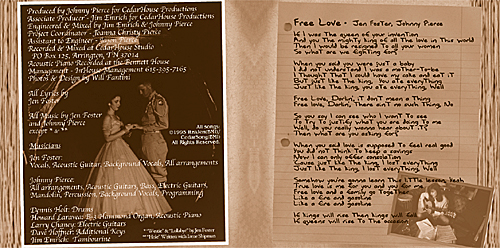 Produced by Johnny Pierce for CedarHouse Productions
Associate Producer - Jim Emrich for CedarHouse Productions
Engineered & Mixed by Jim Emrich & Johnny Pierce
Project Coordinator - Jeanna Christy Pierce
Assistant to Engineer -
Recorded & Mixed at CedarHouse Studio
PO Box 125, Arrington, TN 37014
Acoustic Piano Recorded at the Bennett House
Management - InHouse Management 615-395-7165
Photos & Design by Will Fanfini
All Lyrics by
Jen Foster
All Music by Jen Foster
and Johnny Pierce
except * & **
All songs:
All Rights Reserved.
Musicians
Jen Foster:
Vocals, Acoustic Guitar, Background Vocals, All arrangements
Johnny Pierce:
All arrangements, Acoustic Guitars, Bass, Electric Guitars,
Mandolin, Percussion, Background Vocals, Programming
Dennis Holt: Drums
Howard Laravea: B-3 Hammond Organ, Acoustic Piano
Larry Chaney: Electric Guitars
Dave Hofner: Additional Keys
Jim Emrich: Tambourine
Free Love - Jen Foster, Johnny Pierce
If I was the queen of your invention
And you the mighty king of all the love in this world
Then I would be resigned to all your women
So what are we fighting for?
When you said you were just a baby
I did not understand I was a mother-to-be
I thought that I could have my cake and eat it
But just like the king, you ate everything
Just like the king, you ate everything, Well
Free love, Darlin', it don't mean a thing
Free love, Darlin', there ain't no such thing, No
So you say I can see who I want to see
To try to justify what you are doing to me
Well, do you really wanna hear about it?
Then why are you asking for?
When you said love is supposed to feel real good
You did not think to keep a savings
Now I can only offer consolation
Cause just like the king, I lost everything
Just like the king, I lost everything, Well
Somebody you've gonna learn this little lesson, yeah
True love is me for you and you for me
Free love and a family go together
Like a fire and gasoline
Like a fire and gasoline
If kings will rise then kings will fall
If queens will rise to the occasion